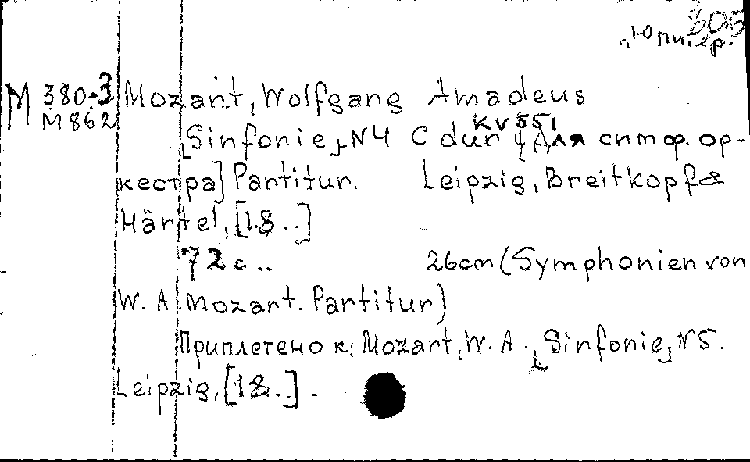 305
"Юпитер.
M 380-3 Mozart, Wolfgang Amadeus
M 862
KV 551
[Sinfonie], N4 C dur [Для симф. ор-
кестра] Partitur. Leipzig, Breitkopf &
Härtel, [18..]
72 с .. 26cm (Symphonien von
W. A. Mozart. Partitur)
Приплетено к: Mozart, W. A. [Sinfonie], N5.
Leipzig, [18..].